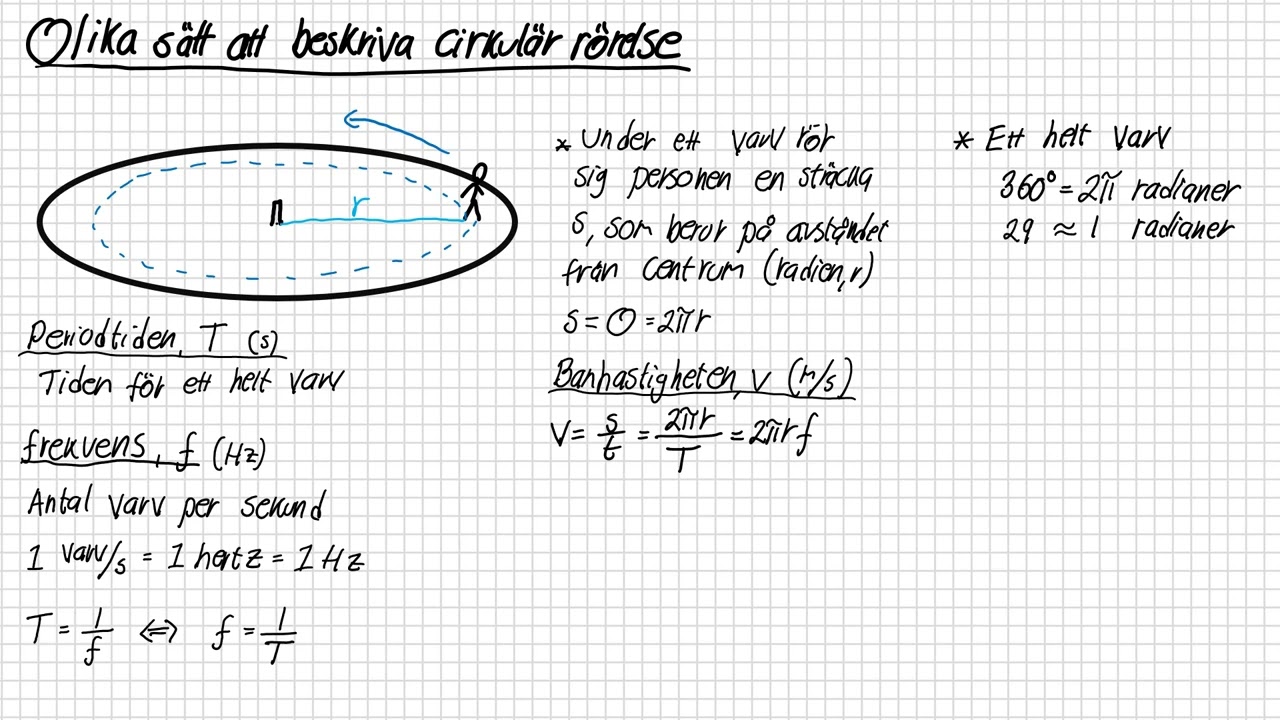 Olika sätt att beskriva cirkulär rörelse
r
Periodtiden, T (s)
Tiden för ett helt varv
frekvens, f (Hz)
Antal varv per sekund
1 varv/s = 1 hertz = 1 Hz
T = 1/f ⇔ f = 1/T
* Under ett varv rör
sig personen en sträcka
s, som beror på avståndet
från centrum (radien, r)
s = O = 2πr
Banhastigheten, v (m/s)
v = s/t = 2πr/T = 2πrf
* Ett helt varv
360° = 2π radianer
29 ≈ 1 radianer